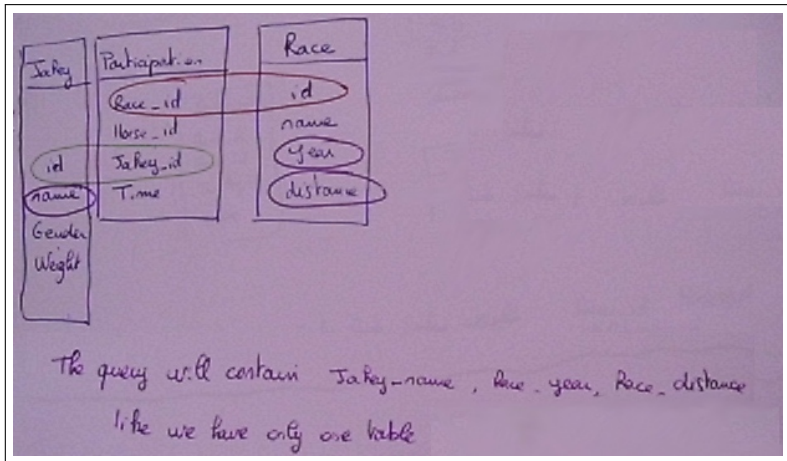 Jakey
id
name
Gender
Weight
Participation
Race_id
Horse_id
Jakey_id
Time
Race
id
name
year
distance
The query will contain Jakey_name, Race_year, Race_distance
like we have only one table